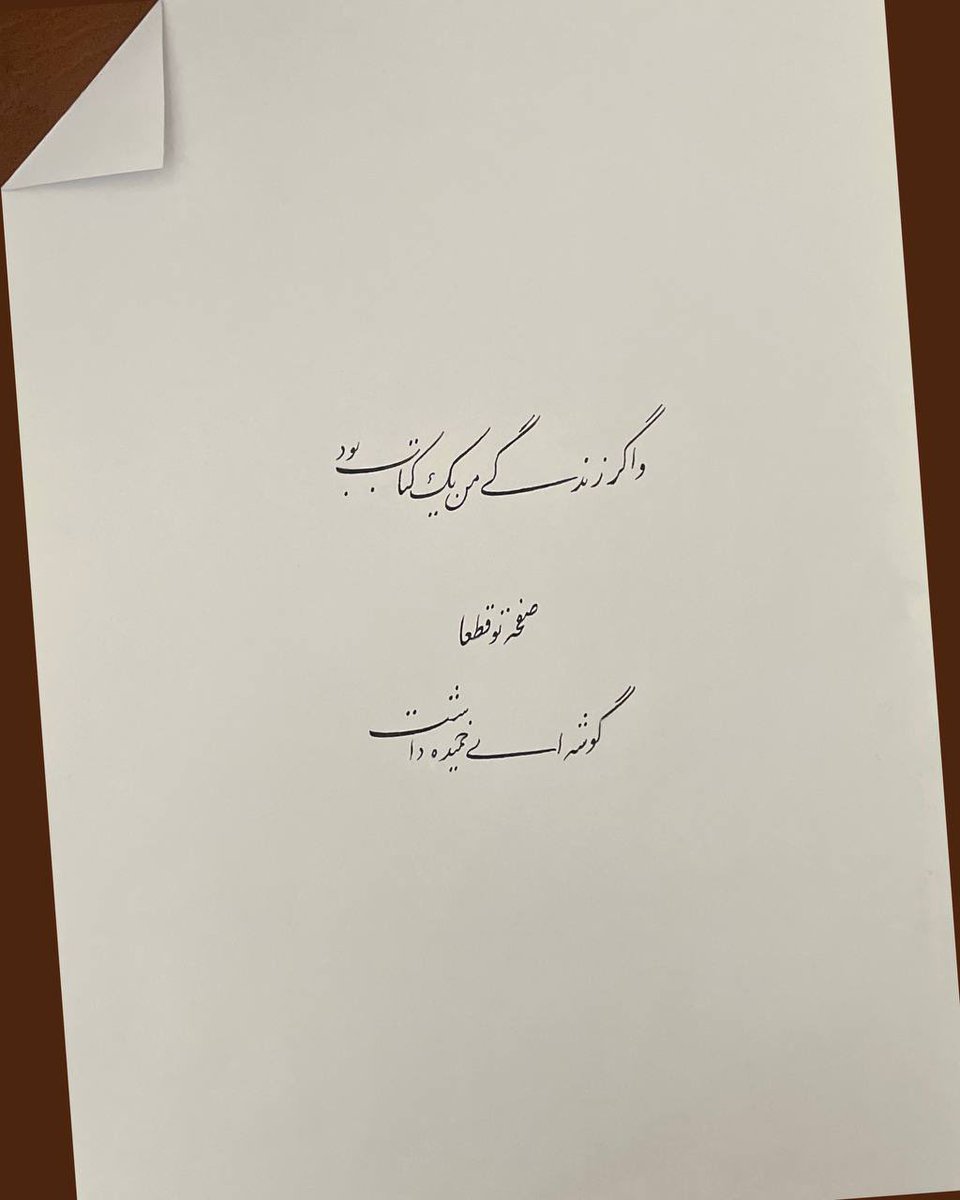 و اگر زندگی من یک کتاب بود
صفحه تو قطعا
گوشه ای خمیده داشت